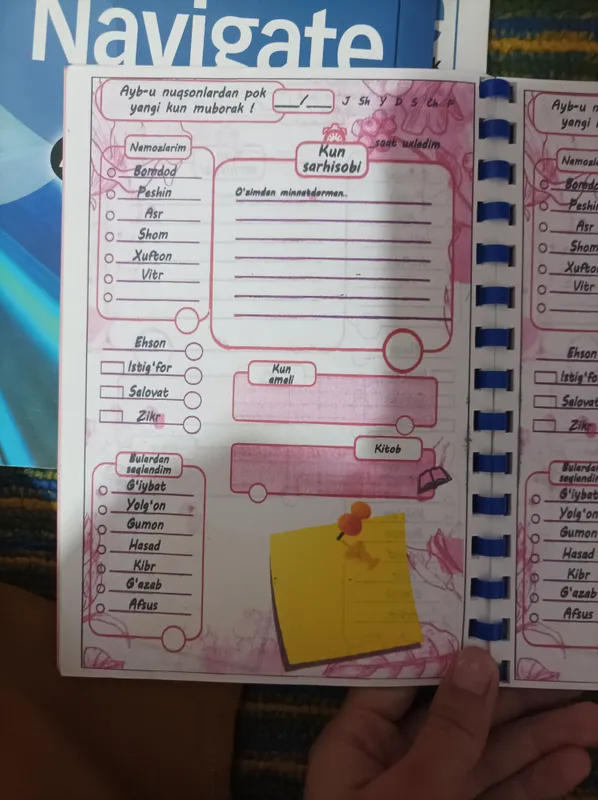 Navigate
Ayb-u nuqsonlardan pok
yangi kun muborak !
__/__ J Sh Y D S Ch P
soat uxladim
Namozlarim
Bomdod
Peshin
Asr
Shom
Xufton
Vitr
Kun
sarhisobi
O'zimdan minnatdorman..
Ehson
Istig'for
Salovat
Zikr
Kun
amali
Kitob
Bulardan
saqlandim
G'iybat
Yolg'on
Gumon
Hasad
Kibr
G'azab
Afsus
Ayb-u n
yangi
Namozla
Bomdod
Peshin
Asr
Shom
Xufto
Vitr
Ehson
Istig'fo
Salovat
Zikr
Bulardan
saqlandim
G'iybat
Yolg'on
Gumon
Hasad
Kibr
G'azab
Afsus